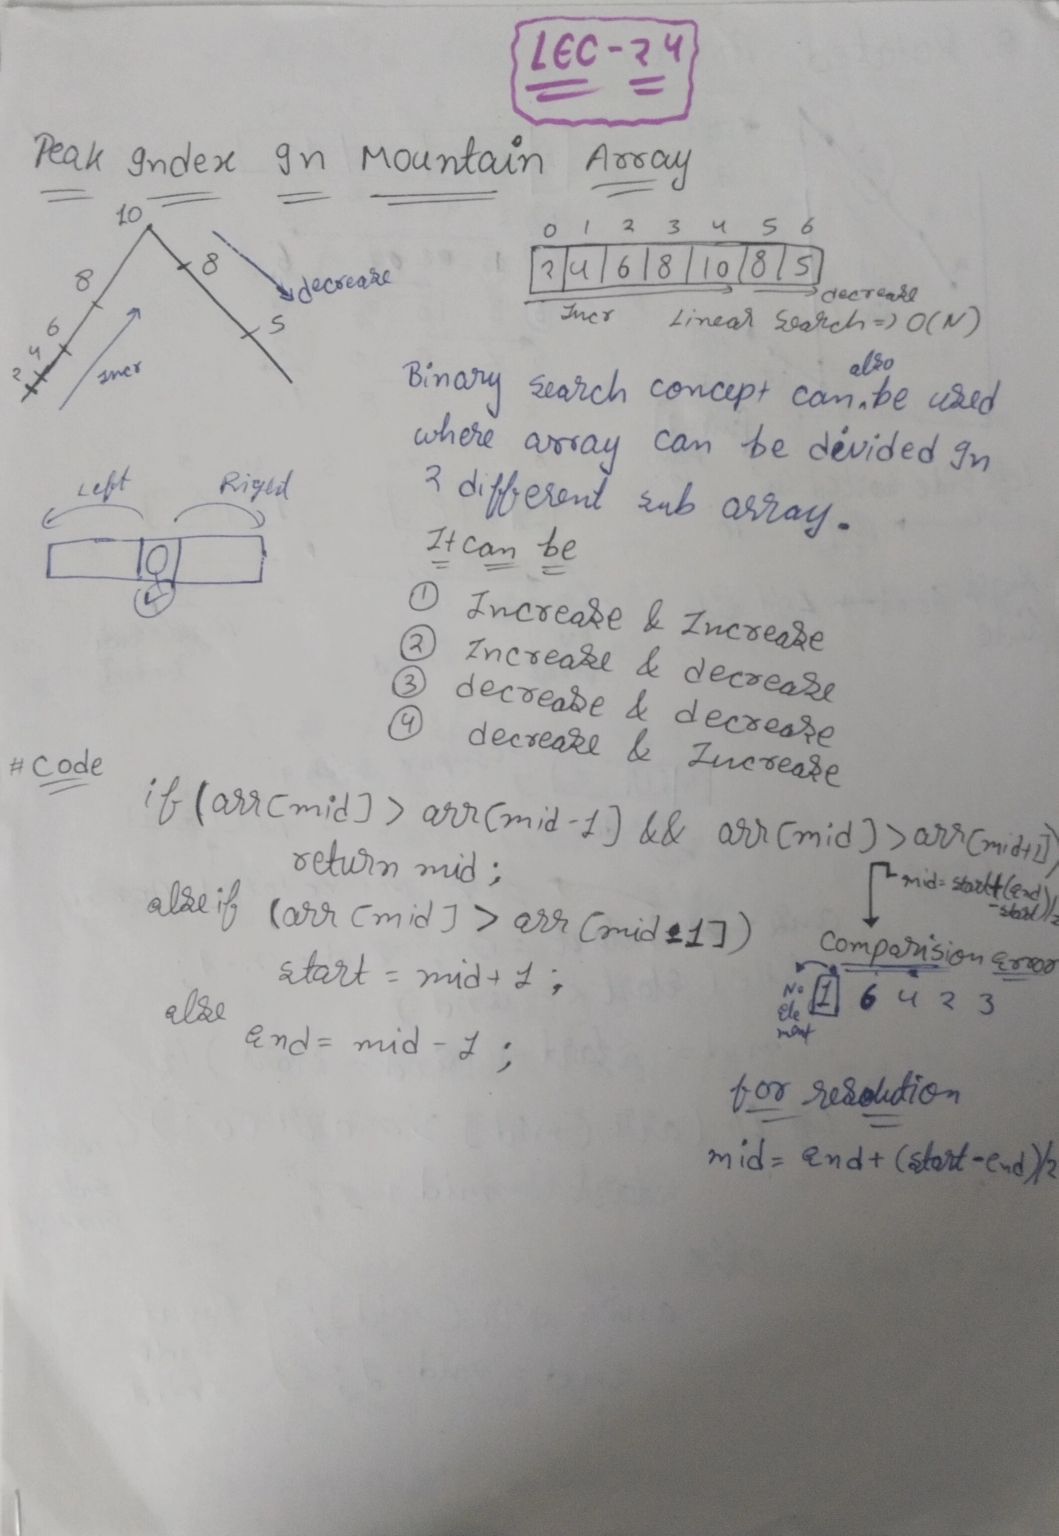 LEC-24
Peak Index In Mountain Array
10
8
6
4
2
8
5
decrease
Incr
0 1 2 3 4 5 6
2 4 6 8 10 8 5
Incr
decrease
Linear Search => O(N)
Binary search concept can also be used
where array can be divided In
2 different sub array.
Left Right
It can be
① Increase & Increase
② Increase & decrease
③ decrease & decrease
④ decrease & Increase
# Code
if (arr[mid] > arr[mid-1] && arr[mid] > arr[mid+1])
return mid;
else if (arr[mid] > arr[mid-1])
start = mid+1;
else
end = mid-1;
mid = start+(end
-start)/2
Comparision Error
No
Ele
ment
1 6 4 2 3
for resolution
mid = end+(start-end)/2